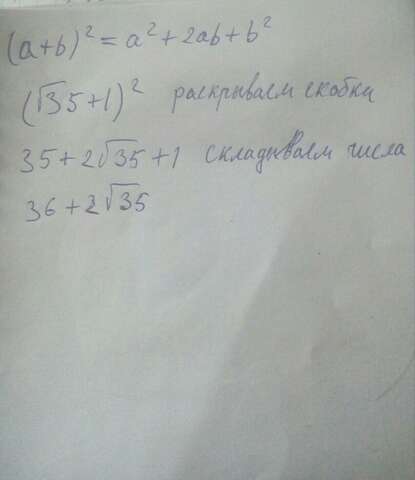 (a+b)² = a² + 2ab + b²
(√35+1)² раскрываем скобки
35+2√35+1 складываем числа
36+2√35